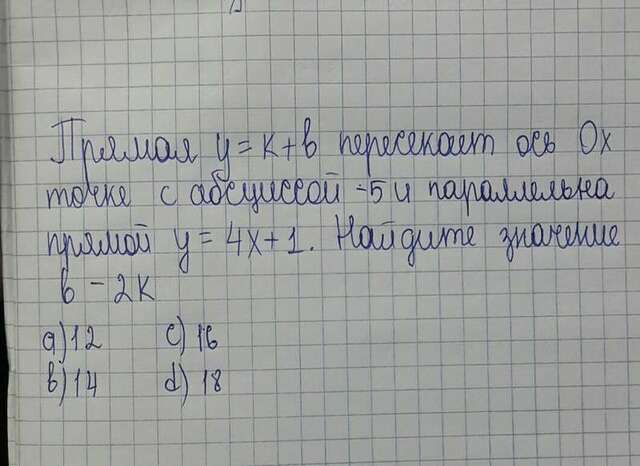 Прямая y = к + в пересекает ось Ox
точке с абсциссой -5 и параллельна
прямой y = 4x + 1. Найдите значение
в - 2к
a) 12 c) 16
b) 14 d) 18